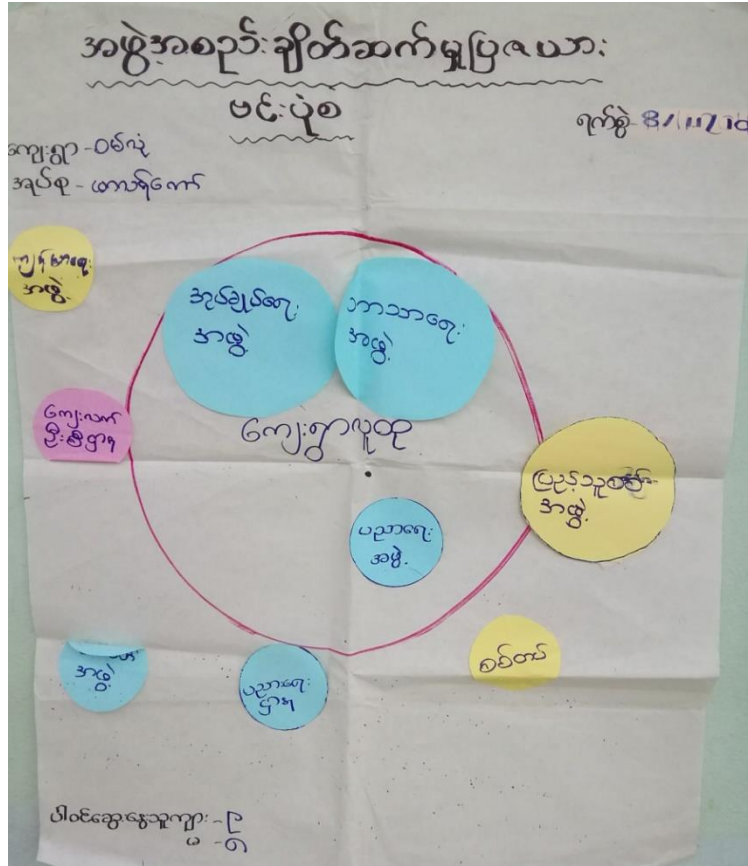 အဖွဲ့အစည်းချိတ်ဆက်မှုပြဇယား
ဗင်းပုံစံ
ရက်စွဲ- 8/11/18
ကျေးရွာ - ဝမ်လုံ
အုပ်စု -
ကျန်းမာရေး
အဖွဲ့
အုပ်ချုပ်ရေး
အဖွဲ့
ဘာသာရေး
အဖွဲ့
ကျေးလက်
ဦးစီးဌာန
ကျေးရွာလူထု
ပြည်သူ့စစ်
အဖွဲ့
ပညာရေး
အဖွဲ့
အဖွဲ့
ပညာရေး
ဌာန
စစ်တပ်
ပါဝင်ဆွေးနွေးသူကျား - ၉
မ - ၅